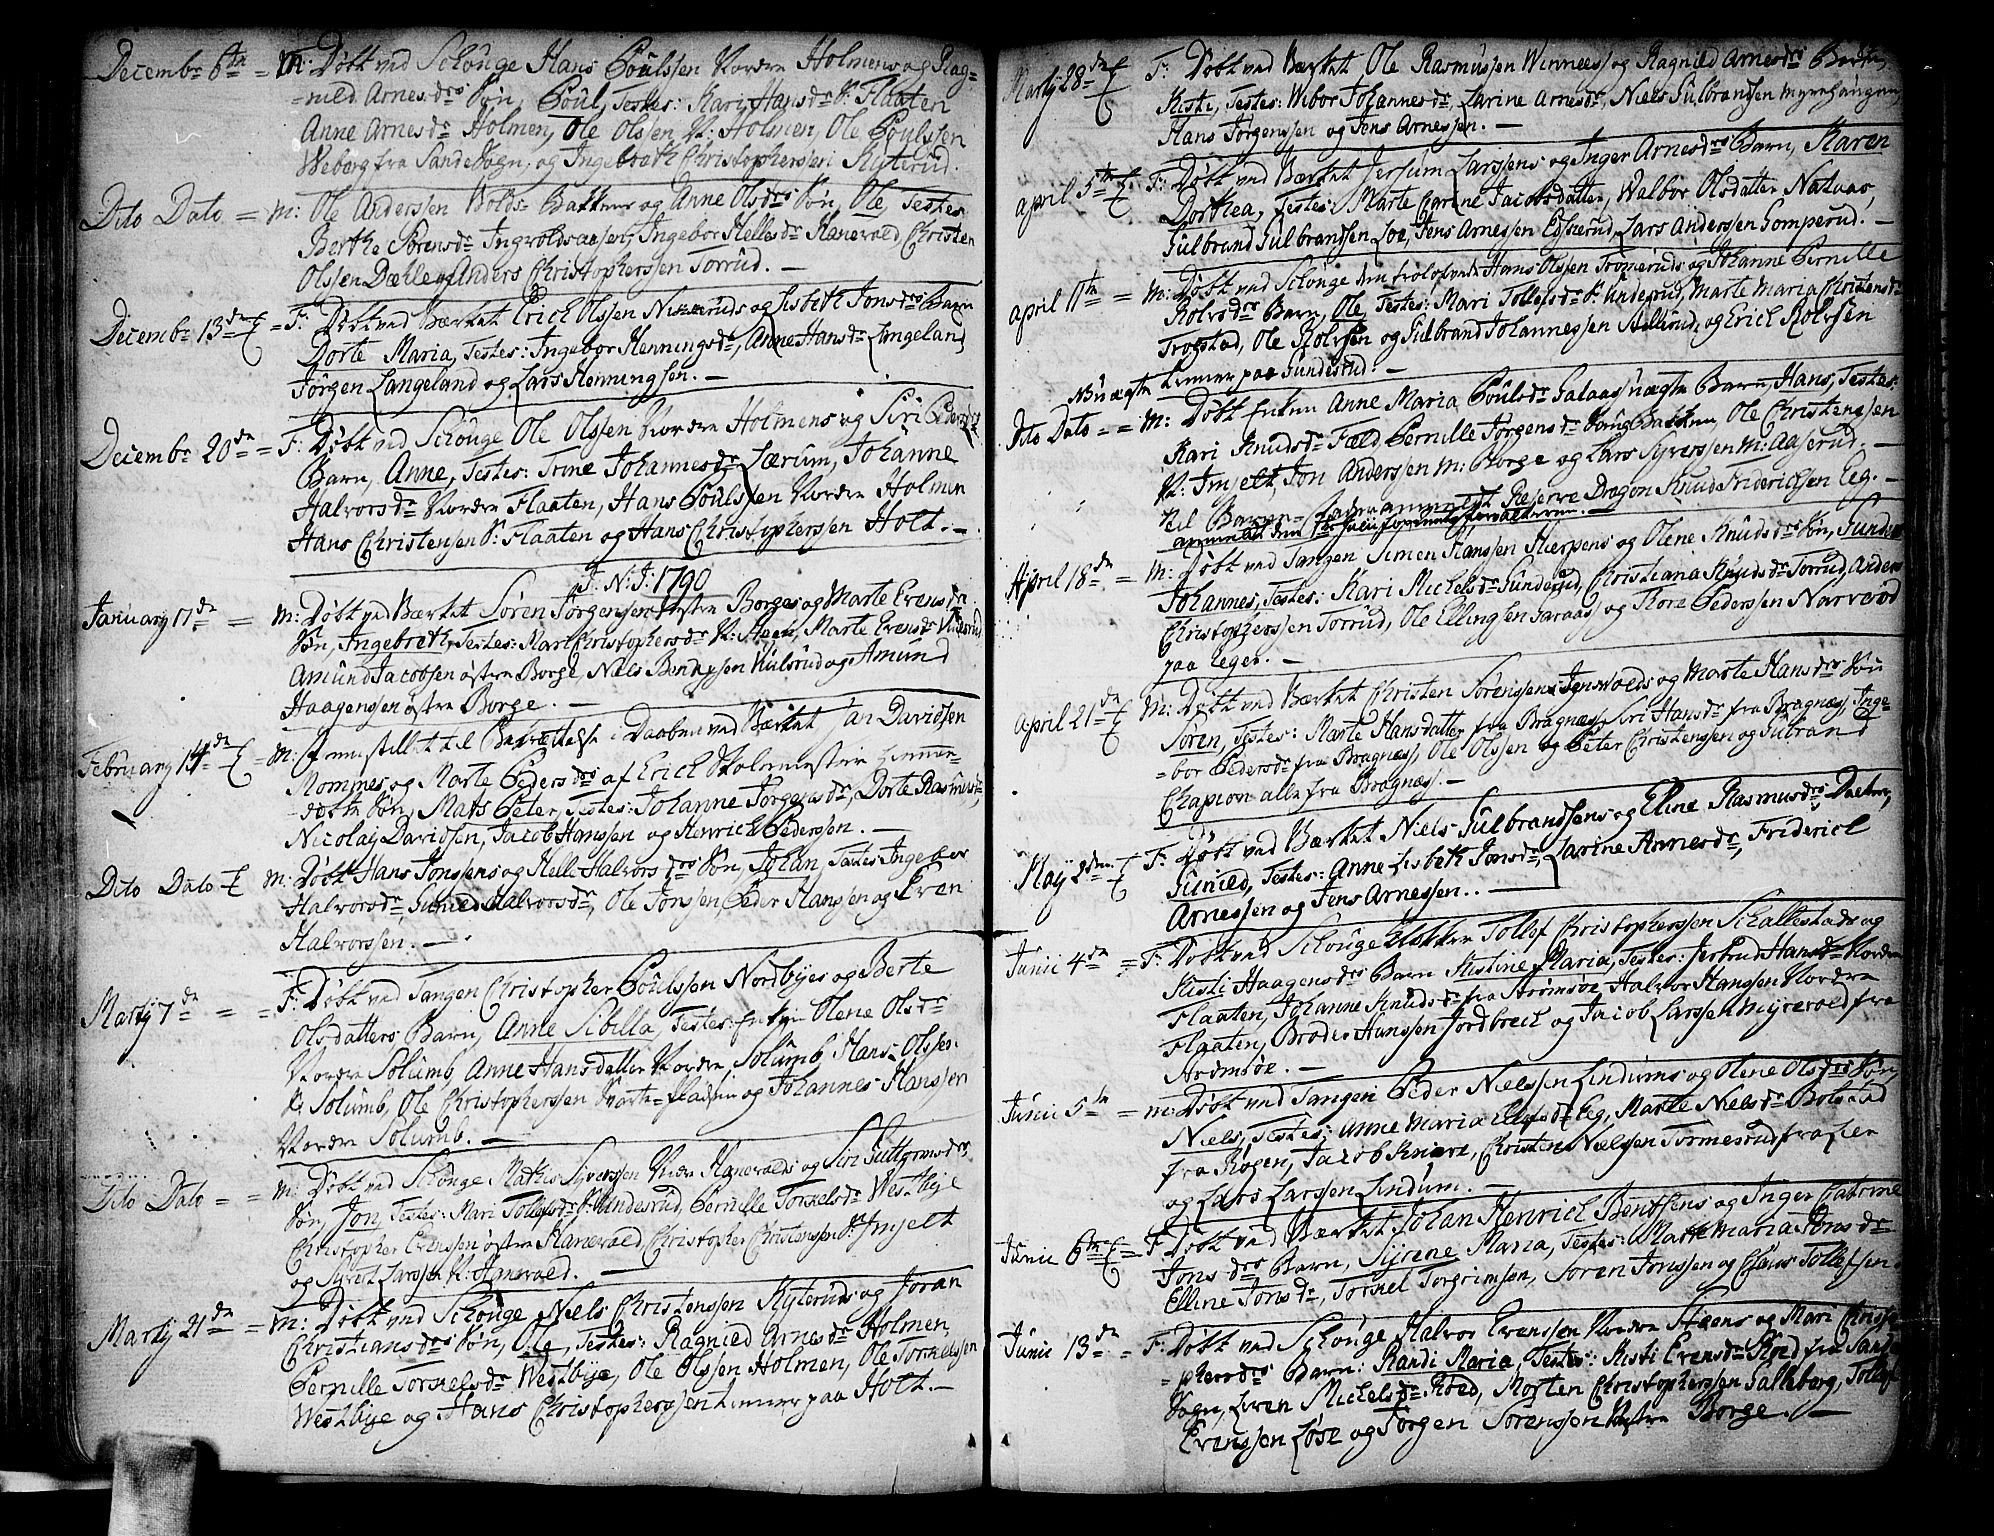 Decembr 6te = M: Døbt ved Schouge Hans Poulssen Nordre Holmens og Rag-
=nild Arnesdrs Søn, Poul, Testes: Kari Hansdr S: Flaaten
Anne Arnesdr Holmen, Ole Olssen N: Holmen, Ole Poulssen
Weborg fra Sande Sogn, og Ingebreth Christopherssen Kyterud.
Dito Dato = M: Ole Anderssen Bolds Batten og Anne Olsdrs Søn, Ole Testes
Berthe Sørensdr Ingvoldsaasen, Ingebor Hellesdr Hanevold, Christen
Olssen Dæhle og Anders Christopherssen Torrud. —
Decembr 13de E = F: Døbt ved Værket Erich Olssen og Lisbeth Jonsdrs Barn
Dorte Maria, Testes: Ingebor Henningsdr, Anne Hansdr Langeland,
Jørgen Langeland og Lars Henningsen. —
Decembr 20de = F: Døbt ved Schouge Ole Olssen Nordre Holmens og Siri Pedersdr
Barn, Anne, Testes: Trine Johannesdr Lærum, Johanne
Halvorsdr Nordre Flaaten, Hans Poulssen Nordre Holmen
Hans Christensen S: Flaaten og Hans Christopherssen Holt. —
J: N: J: 1790
January 17de = M: Døbt ved Værket Søren Jørgensen Østre Borges og Marte Evensdr
Søn, Ingebreth, Testes: Mari Christophersdr N: Haga, Marte Evensdr
Amund Jacobsen østre Borge, Niels Bentssen Hulsrud og Amund
Haagenssen østre Borge. —
February 14de E = M: Fremstillet til Bekræftelse i Daaben ved Værket Jan Davidsen
Mommes og Marte Pedersdrs af Erich Skolemester hiemme
døbte Søn, Mats Peter, Testes: Johanne Jørgensdr, Dorte Rasmusdr,
Nicolay Davidssen, Jacob Hanssen og Henrich Pederssen. —
Dito Dato E M: Døbt Hans Jonssens og Helle Halvorsdrs Søn, Johan, Testes: Ingebor
Halvorsdr Gunild Halvorsdr, Ole Jonssen, Peder Hanssen og Even
Halvorssen. —
Martij 7de = = F: Døbt ved Tangen Christopher Poulssen Nordbyes og Berte
Olsdatters Barn, Anne Sibilla, Testes: Olene Olsdr
Nordre Solumb, Anne Hansdatter Nordre Solumb, Hans Olssen
S: Solumb, Ole Christopherssen Svarte-Pladsen og Johannes Hanssen
Nordre Solumb. —
Dito Dato = = M: Døbt ved Schouge Mathis Syverssen Nedre Hanevolds og Siri Guttormsdrs
Søn, Jon, Testes: Mari Tollefsdr S: Undesrud, Pernille Torkelsdr Westbye
Christopher Evenssen østre Hanevold, Christopher Christenssen S: Imjelt
og Syvert Larssen N: Hanevold. —
Martij 21de = M: Døbt ved Schouge Niels Christenssen Kyteruds og Joran
Christiansdrs Søn, Ole, Testes: Ragnild Arnesdr Holmen,
Pernille Torkelsdr Westbye, Ole Olssen Holmen, Ole Torkelssen
Westbye og Hans Christopherssen tienner paa Holt. —
Martij 28de E F: Døbt ved Værket Ole Rasmussen Winness og Ragnild Arnesdrs Barn,
Kisti, Testes: Wibor Johannesdr, Larine Arnesdr, Niels Gulbrandsen Myrehaugen,
Hans Jørgenssen og Jens Arnessen. —
April 5te E F: Døbt ved Værket Larssens og Inger Arnesdrs Barn, Karen
Dorthea, Testes: Marte Jacobsdatter, Walbor Olsdatter Nataas,
Gulbrand Gulbrandsen Loe, Jens Arnessen Edserud, Lars Anderssen Gomperud. —
April 11te = M: Døbt ved Schouge den trolofvede Hans Olssen Tromeruds og Johanne Pernille
Rolvsdrs Barn, Ole, Testes: Mari Tollefsdr S: Underud, Marte Maria Christensdr
Trogstad, Ole Rolvsen og Gulbrand Johannessen Asserud, og Erich Rolvsen
tienner paa Gundesrud. —
NB uægte
Dito Dato = = M: Døbt Anne Maria Poulsdr Galaas uægte Barn, Hans, Testes:
Kari Knudsdr Fæld Pernille Jørgensdr Batten, Ole Christenssen
N: Imjelt, Jon Anderssen M: Borge og Lars Syverssen M: Aaserud. —
til Barne-Fader anmeldt Reserve Dragon Knud Friderichssen Eeg. —
April 18de = M: Døbt ved Tangen Simen Hanssen Hierpens og Olene Knudsdrs Søn, Gunder
Johannes, Testes: Kari Michelsdr Gunderud, Christiana Knudsdr Torrud, Anders
Christopherssen Torrud, Ole Ellingsen Garaas og Tore Pederssen Narverød
paa Eeger. —
April 21de E M: Døbt ved Værket Christen Sørenssen Jonsvolds og Marte Hansdrs Søn
Søren, Testes: Marte Hansdatter fra Bragnæs, Siri Hansdr fra Bragnæs, Inge-
=bor Pedersdr fra Bragnæs, Ole Olssen og Peter Christenssen og Gulbrand
Chapion alle fra Bragnæs. —
May 2den E F: Døbt ved Værket Niels Gulbrandsens og Eline Rasmusdrs Datter,
Gunild, Testes: Anne Lisbeth Jonsdr, Larine Arnesdr, Friderich
Arnessen og Jens Arnessen. —
Junii 4de = F: Døbt ved Schouge Tollof Christopherssen Schallestads og
Kisti Haagensdrs Barn Kistine Maria, Testes: Jertrud Hansdr Nordre
Flaaten, Johanne Knudsdr fra Strømsøe Halvor Hanssen Nordre
Flaaten, Broder Hanssen Jordbreck og Jacob Larssen Myrevold fra
Strømsøe. —
Junii 5te = M: Døbt ved Tangen Peder Nielssen Lindums og Olene Olsdrs Søn,
Niels, Testes: Anne Maria Ellefsdr Eeg, Marte Nielsdr Bolstad
fra Røgen, Jacob Knive, Christen Nielssen Tørmesrud fra Lier
og Lars Larssen Lindum. —
Junii 6te E = F: Døbt ved Værket Johan Henrich Bentsens og Inger Catrine
Jonsdrs Barn, Syrene Maria, Testes: Marte Maria Jonsdr
Elline Jonsdr, Torkel Torgrimsen, Søren Jonssen og Claus Tollefsen.
Junii 13de = F: Døbt ved Schouge Halvor Evenssen Nordre Haugens og Mari Christo-
=phersdrs Barn: Randi Maria, Testes: Kisti Evensdr Røed fra Sande
Sogn, Karen Michelsdr Røed, Morten Christopherssen Galleberg, Tollef
Evenssen Løse og Jørgen Sørenssen Vestre Borge. —